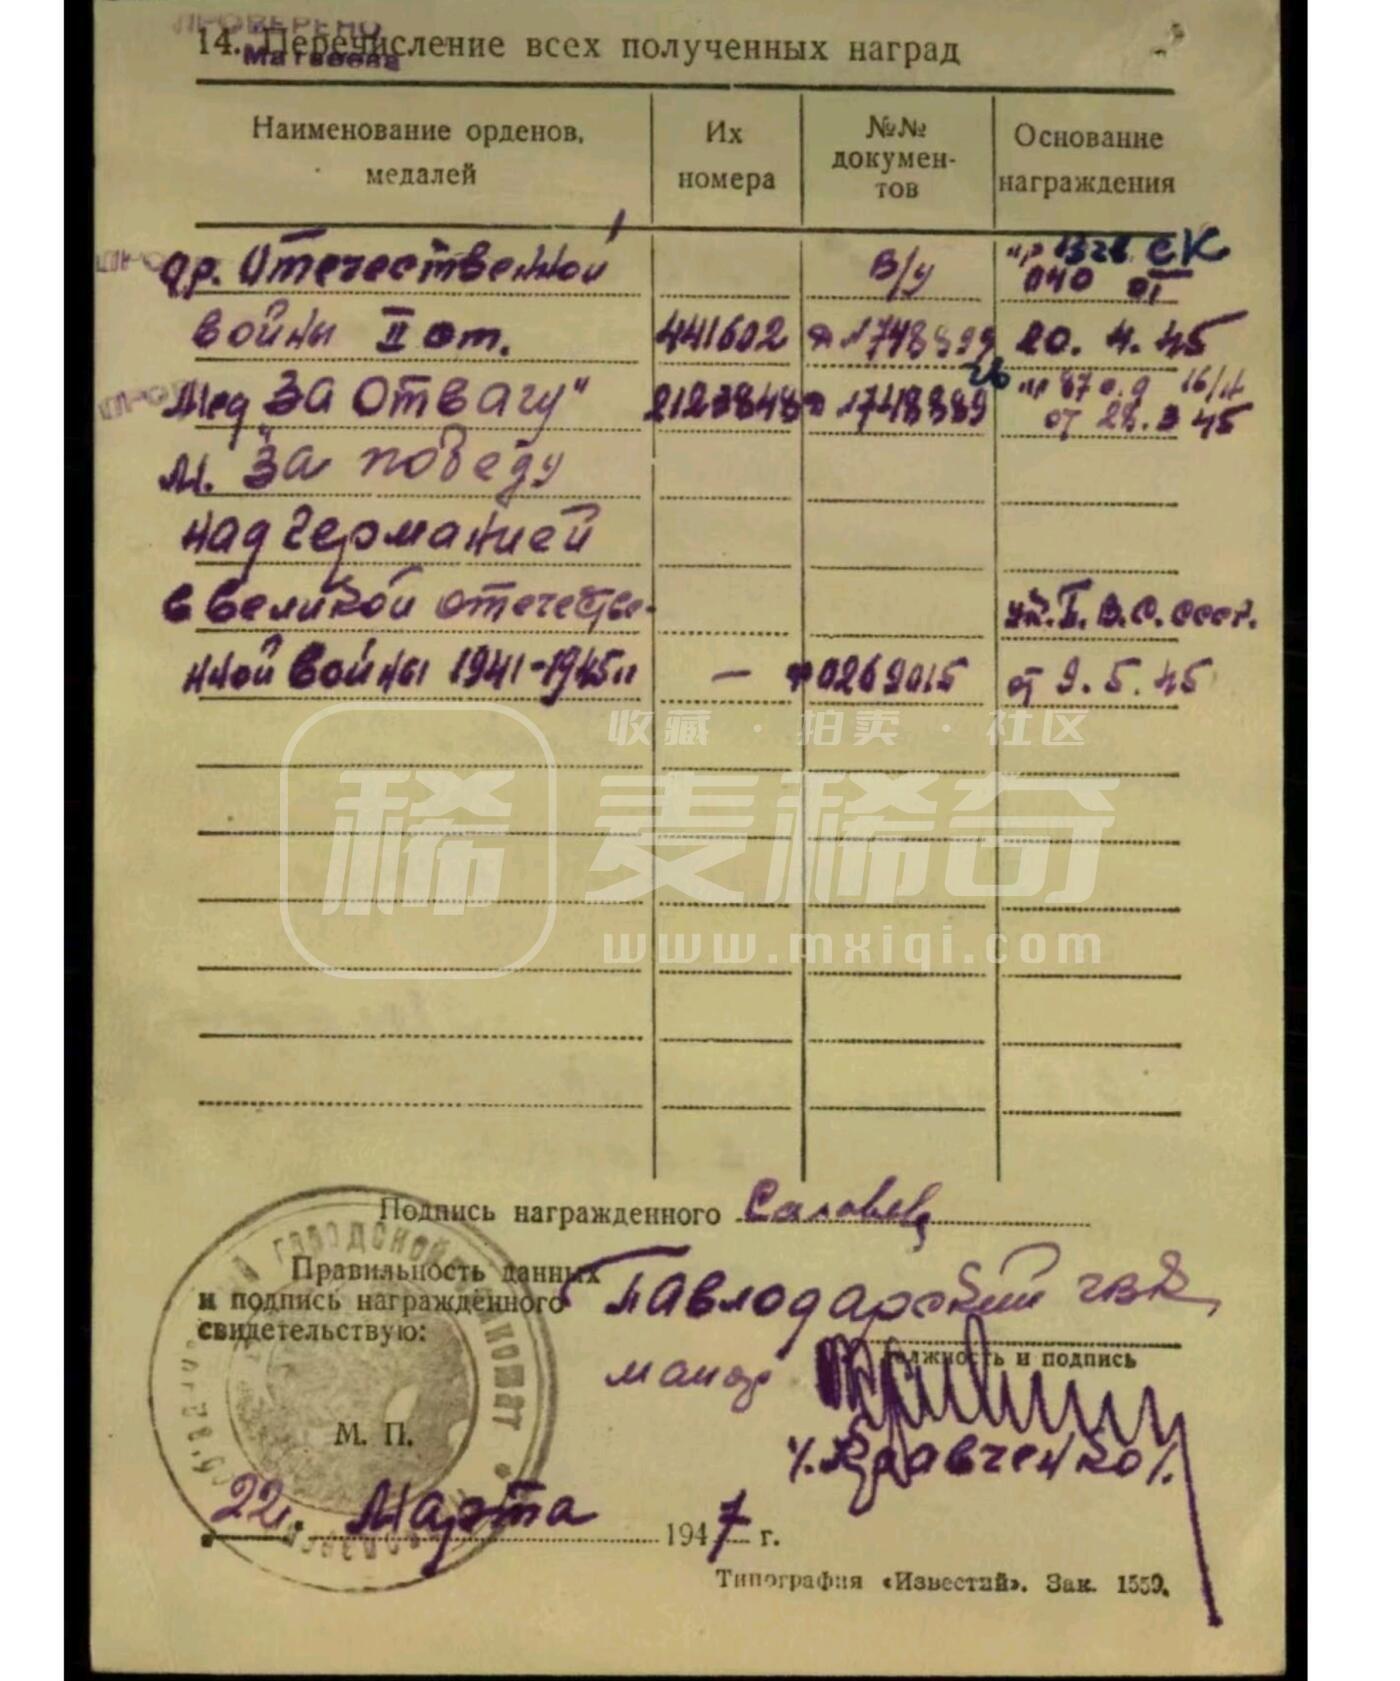 ПРОВЕРЕНО
Матвеева
14. Перечисление всех полученных наград
Наименование орденов, медалей
Их номера
№№ документов
Основание награждения
ор. Отечественной В/у пр 13 гв. СК 040 от
войны II ст. 441602 1748399 20. 4. 45
Мед „За Отвагу" 2123848 1748389 пр 87 от 28. 3 45
М. „За победу
над Германией
в великой отечестве- ук. П. В. С. СССР.
нной войны 1941-1945 гг — 0269015 от 9. 5. 45
收藏 · 拍卖 · 社区
稀 麦稀奇
www.mxiqi.com
Подпись награжденного
Правильность данных
и подпись награжденного
свидетельствую:
Павлодарский гвк
должность и подпись
майор
/. Кравченко /.
М. П.
22. Марта 1947 г.
Типография «Известий». Зак. 1559.